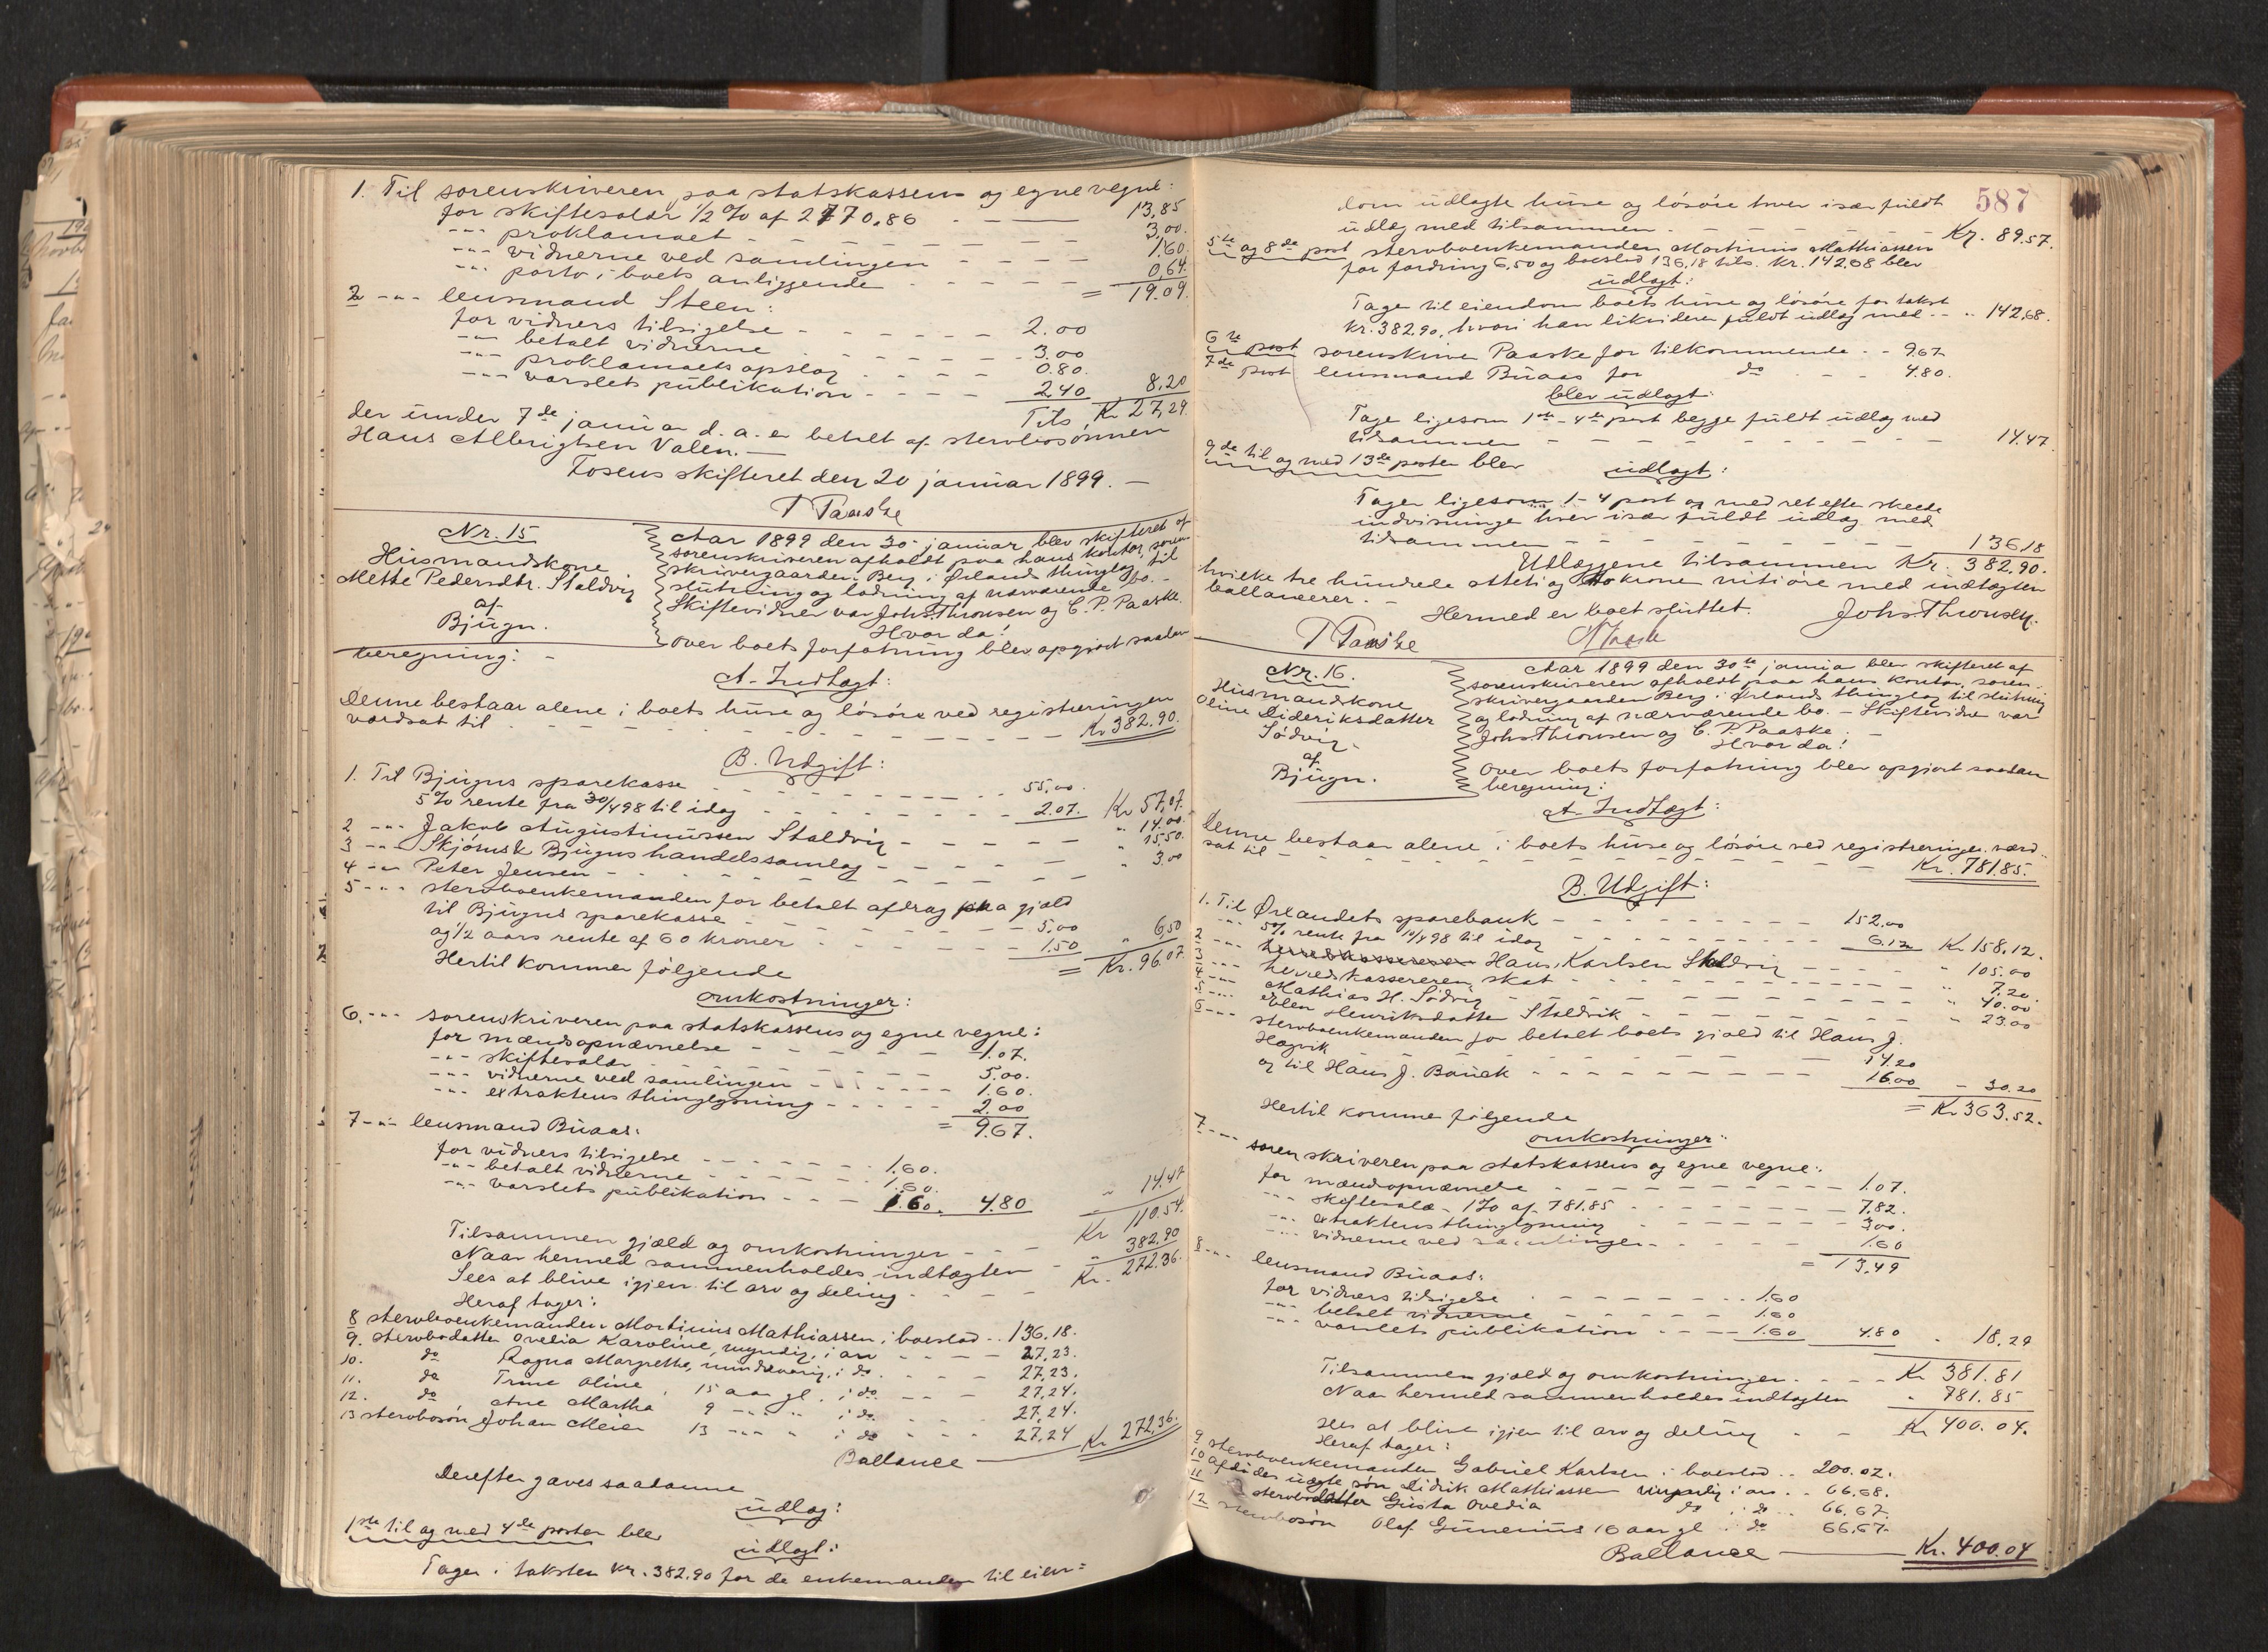 1. Til sorenskriveren paa statskassens og egne vegne:
for skiftesalær 1/2 % af 2770.86 - - 13,85
-"- proklamaet - - - - 3,00.
-"- vidnerne ved samlingen - - - - 1.60.
-"- porto i boets anliggende - - - - 0,64.
= 19.09.
2 -"- lensmand Steen:
for vidners tilsigelse - - - - 2.00
-"- betalt vidnerne - - - - 3.00
-"- proklamaets opslag - - - - 0.80.
-"- varslets publikation - - - - 2,40 8.20
Tils. Kr 27,29.
der under 7de januar d. a. er betalt af stervbosønnen
Hans Albrigtsen Valen. —
Fosens skifteret den 20 januar 1899. —
T Paaske
Nr. 15
Husmandskone
Mette Pedersdtr. Staldvig
af
Bjugn.
Aar 1899 den 30. januar blev skifteret af
sorenskriveren afholdt paa hans kontor, soren-
skrivergaarden Berg i Ørlands thinglag til
slutning og lodning af nærværende bo. -
Skiftevidner var Johs. Thronsen og C. P. Paaske.
Hvor da!
Over boets forfatning blev opgjort saadan
beregning: -
A. Indtægt:
Denne bestaar alene i boets huse og løsøre ved registreringen
værdsat til - - - - Kr 382.90.
B. Udgift:
1. Til Bjugns sparekasse - - - - 55,00.
5% rente fra 30/4 98 til idag - - - - 2.07. Kr 57,07.
2 -"- Jakob Augustinussen Staldvig - - - - " 14.00.
3 -"- Skjørnsk Bjugns handelssamlag - - - - " 15.50.
4 -"- Peter Jensen - - - - " 3.00
5 -"- stervboenkemanden for betalt afdrag paa gjæld
til Bjugns sparekasse - - - - 5.00
og 1/2 aars rente af 60 kroner - - - - 1.50 " 6,50
= Kr. 96.07.
Hertil kommer følgende
omkostninger:
6. -"- sorenskriveren paa statskassens og egne vegne:
for mændsopnævnelse - - - - 1.07.
-"- skiftesalær - - - - 5.00.
-"- vidnerne ved samlingen - - - - 1.60.
-"- extraktens thinglysning - - - - 2.00
= 9.67.
7 -"- lensmand Buaas:
for vidners tilsigelse - - - - 1.60.
-"- betalt vidnerne - - - - 1.60.
-"- varslets publikation - - - 1.60. 4.80 " 14.47
Tilsammen gjæld og omkostninger - - - Kr 110.54.
Naar hermed sammenholdes indtægten - " 382.90
Sees at blive igjen til arv og deling - - - Kr. 272.36.
Heraf tager:
8 stervboenkemanden Martinus Mathiassen i boeslod - - 136.18.
9. stervbodatter Ovelia Karoline, myndig, i arv - - - 27,23.
10. do Ragna Margrethe, mindreårig, i do - - - 27,23.
11. do Trine Oline, 15 aar gl. i do - - - 27,24.
12. do Ane Martha 9 -"- " i do - - - 27,24.
13 stervbosøn Johan Meier 13 -"- " i do - - - 27,24 Kr 272,36.
Ballance —
Derefter gaves saadanne
udlæg:
1ste til og med 4de posten blev
udlagt:
Tager i taksten Kr. 382.90 for de enkemanden til eien=
587
dom udlagte huse og løsøre hver især fuldt
udlæg med tilsammen - - - - Kr. 89.57.
5te og 8de post stervboenkemanden Martinus Mathiassen
for fordring 6,50 og boeslod 136,18 tils. Kr. 142,68 blev
udlagt:
Tager til eiendom boets huse og løsøre for takst
Kr. 382.90, hvori han likviderer fuldt udlæg med - - " 142,68.
6te post sorenskriver Paaske for tilkommende - - 9.67
7de post lensmand Buaas for do - - - 4.80.
blev udlagt:
Tager ligesom 1ste - 4de post begge fuldt udlæg med
tilsammen - - - - 14.47
9de til og med 13de posten blev udlagt:
Tager ligesom 1-4 post og med ret efter skeede
indvisninger hver især fuldt udlæg med
tilsammen - - - - 136.18
Udlæggene tilsammen Kr. 382.90.
hvilke tre hundrede otteti og to kroner nitiøre med indtægten
ballancerer. -
Hermed er boet sluttet.
Johs. Thronsen.
T Paaske
Nr. 16.
Husmandskone
Oline Dideriksdatter
Sødvig
af
Bjugn.
Aar 1899 den 30te januar blev skifteret af
sorenskriveren afholdt paa hans kontor, soren-
skrivergaarden Berg i Ørlands thinglag til slutning
og lodning af nærværende bo. - Skiftevidner var
Johs. Thronsen og C. P. Paaske. -
Hvor da!
Over boets forfatning blev opgjort saadan
beregning:
A. Indtægt:
Denne bestaar alene i boets huse og løsøre ved registreringen værd-
sat til - - - - Kr. 781.85.
B. Udgift:
1. Til Ørlandets sparebank - - - - 152.00
-"- 5% rente fra 10/4 98 til idag - - - - 6.12 Kr 158,12.
2 -"- herredskassereren Hans Karlsen Staldvig - - - - " 105.00
3 -"- herredskassereren, skat - - - - " 7.20.
4 -"- Mathias H. Sødvig - - - - " 40.00
5 -"- Elen Henriksdatter Staldvik - - - - " 23.00
6 -"- stervboenkemanden for betalt boets gjæld til Hans J.
Høgvik - - - - 14.20
og til Hans J. Bauck - - - - 16.00 - 30.20
= Kr 363.52.
Hertil kommer følgende
omkostninger:
7 -"- sorenskriveren paa statskassens og egne vegne:
for mændsopnævnelse - - - - 1.07.
-"- skiftesalær 1% af 781.85 - - - - 7.82.
-"- extraktens thinglysning - - - - 3.00.
-"- vidnerne ved samlingen - - - - 1.60
= 13.49
8 -"- lensmand Buaas:
for vidners tilsigelse - - - - 1.60
-"- betalt vidnerne - - - - 1.60
-"- varslets publikation - - - 1.60 4.80 " 18.29
Tilsammen gjæld og omkostninger - - - Kr 381.81
Naar hermed sammenholdes indtægten " 781.85
Sees at blive igjen til arv og deling - - Kr 400.04.
Heraf tager:
9 stervboenkemanden Gabriel Karlsen i boeslod - - 200.02.
10 afdødes uægte søn Didrik Mathiassen myndig i arv - - 66.68.
11 stervbodatter Gusta Ovedia do i do - - 66.67.
12 stervbosøn Olaf Gunerius 16 aar gl i do 66.67.
Ballance — Kr. 400.04